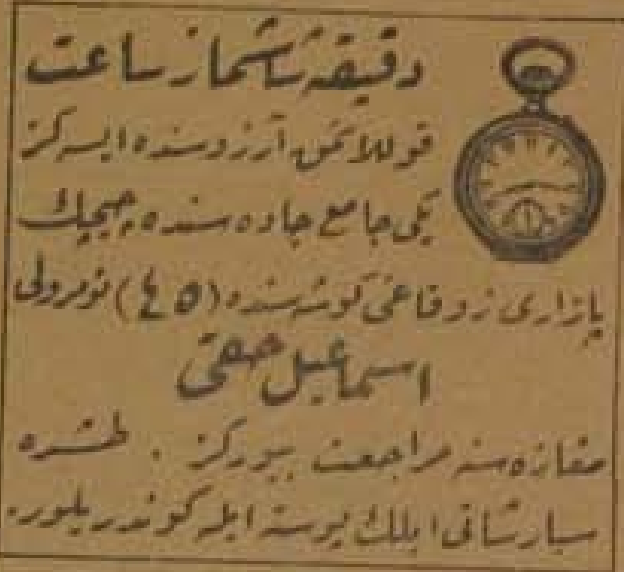 دقیقه شاشماز ساعت
قوللانمق آرزوسنده ایسه‌كز
یكی جامع جاده سنده چیچك
پازاری زوقاغی كوشه سنده (٤٥) نومرولی
اسماعیل حقی
مغازه سنه مراجعت بیوركز . طشره
سپارشاتی ایلك پوسته ایله كوندریلور.